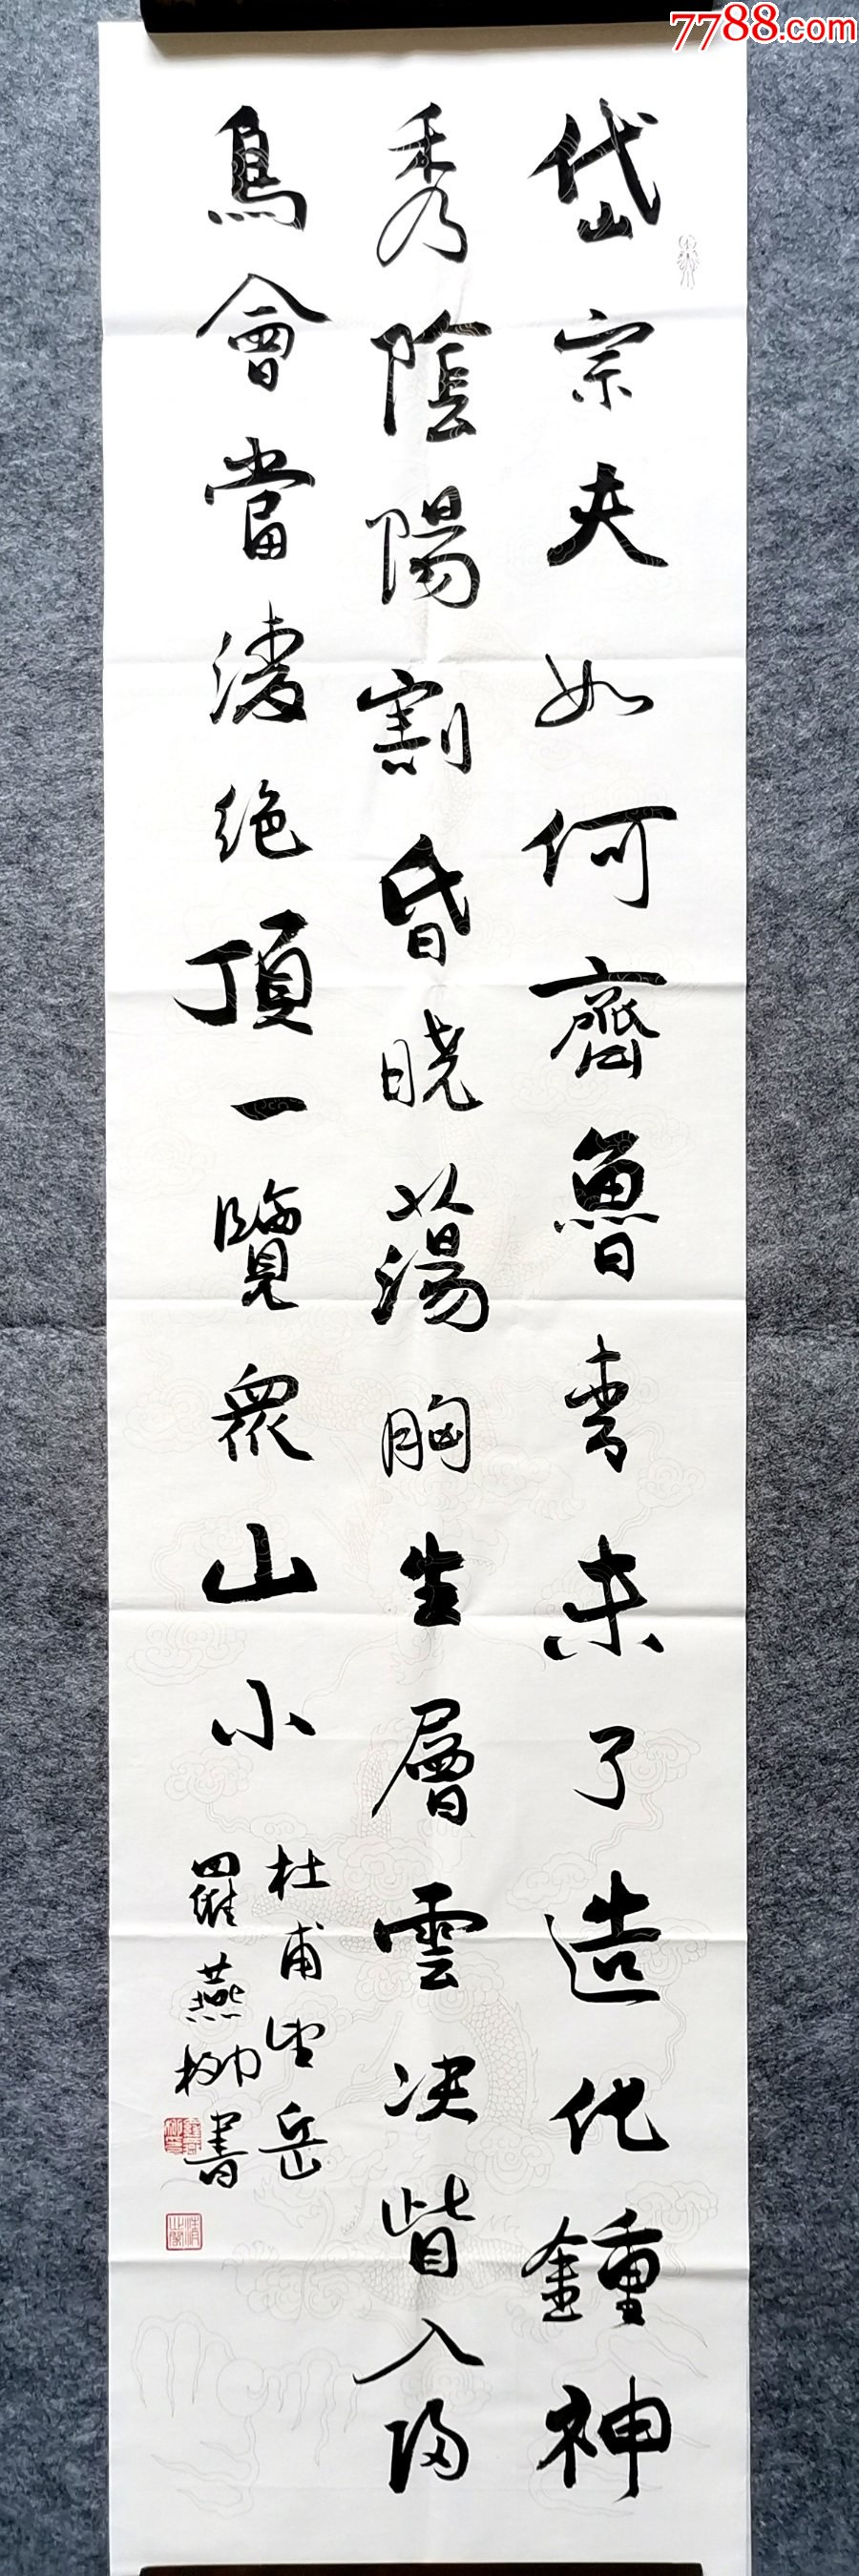 岱宗夫如何齊魯青未了造化鍾神
秀陰陽割昏曉蕩胸生層雲決眥入歸
鳥會當凌絕頂一覽眾山小
杜甫望岳
羅燕柳書
7788.com